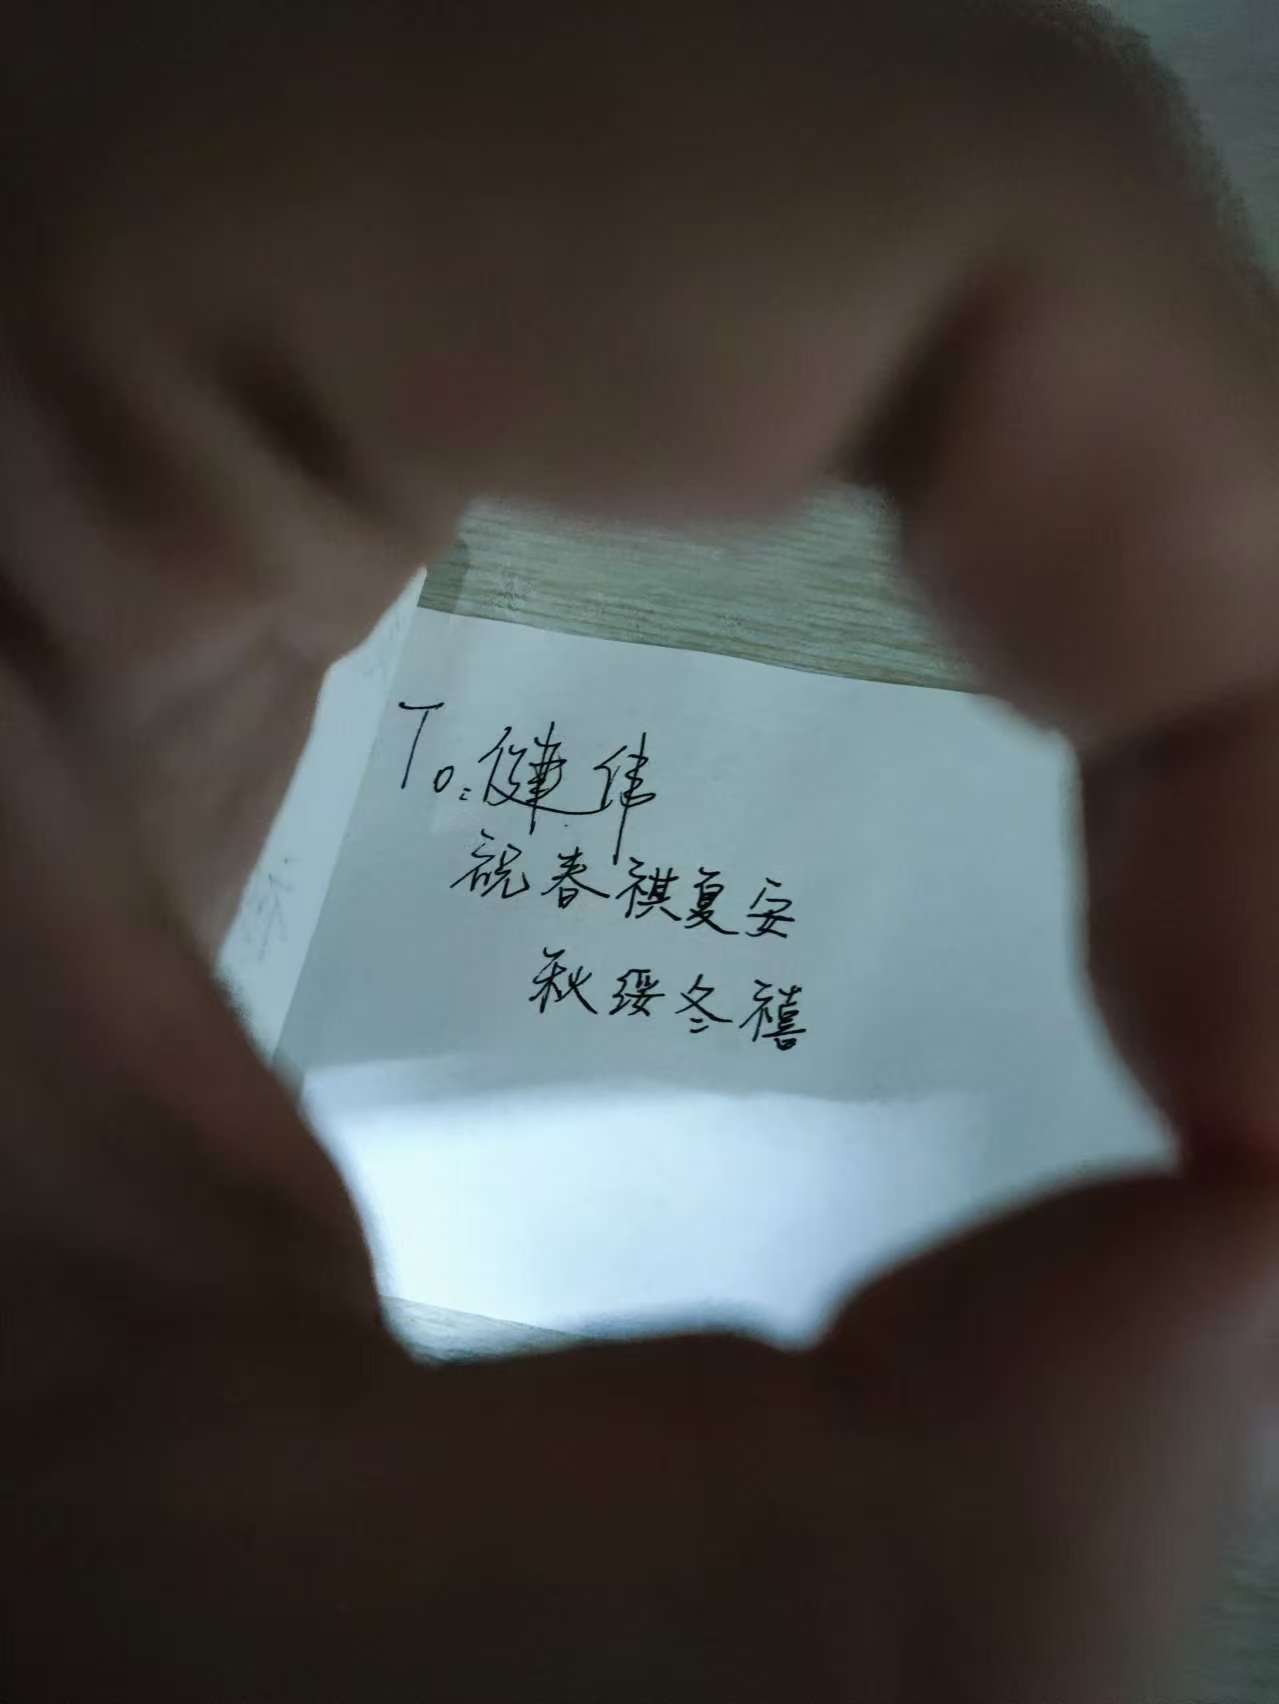 To:健伟
祝春祺夏安
秋绥冬禧